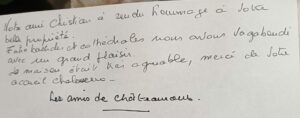 Notre ami Christian à rendu hommage à votre
belle propriété.
Entre bastides et cathédrales nous avons vagabondé
avec un grand plaisir.
La maison était très agréable, merci de votre
accueil chaleureux.
Les amis de